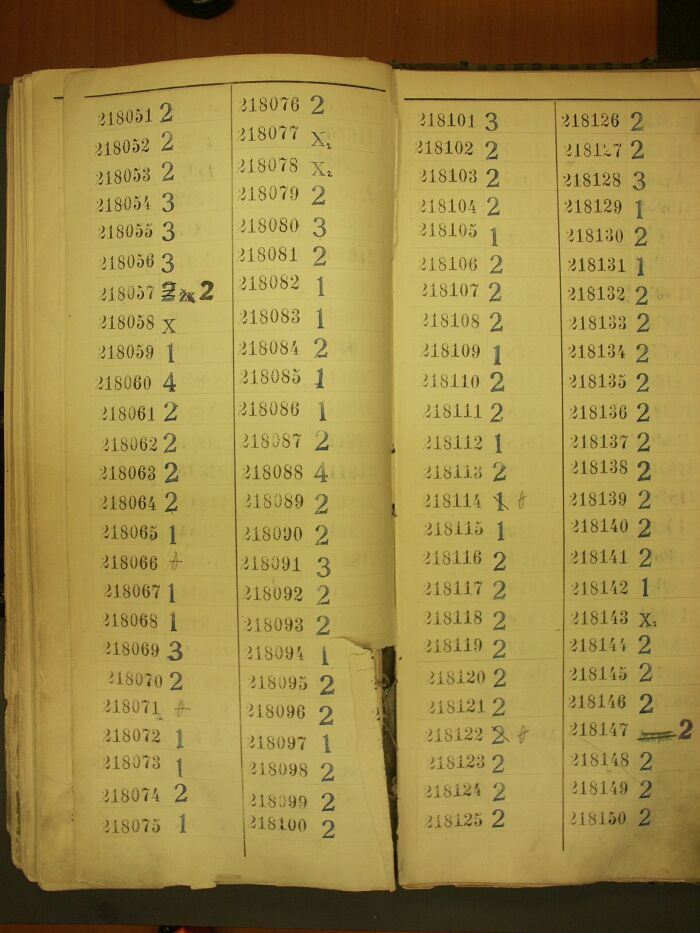 218051 2
218052 2
218053 2
218054 3
218055 3
218056 3
218057 2 2x 2
218058 X
218059 1
218060 4
218061 2
218062 2
218063 2
218064 2
218065 1
218066
218067 1
218068 1
218069 3
218070 2
218071
218072 1
218073 1
218074 2
218075 1
218076 2
218077 X2
218078 X2
218079 2
218080 3
218081 2
218082 1
218083 1
218084 2
218085 1
218086 1
218087 2
218088 4
218089 2
218090 2
218091 3
218092 2
218093 2
218094 1
218095 2
218096 2
218097 1
218098 2
218099 2
218100 2
218101 3
218102 2
218103 2
218104 2
218105 1
218106 2
218107 2
218108 2
218109 1
218110 2
218111 2
218112 1
218113 2
218114 1
218115 1
218116 2
218117 2
218118 2
218119 2
218120 2
218121 2
218122 2
218123 2
218124 2
218125 2
218126 2
218127 2
218128 3
218129 1
218130 2
218131 1
218132 2
218133 2
218134 2
218135 2
218136 2
218137 2
218138 2
218139 2
218140 2
218141 2
218142 1
218143 X2
218144 2
218145 2
218146 2
218147 2
218148 2
218149 2
218150 2